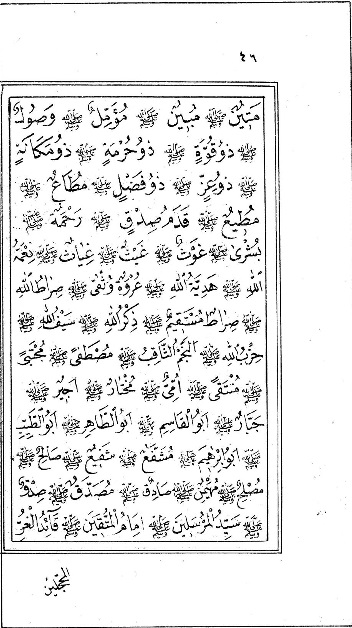 ٤٦
مَتِينٌ ﷺ مُبِينٌ ﷺ مُؤَمِّلٌ ﷺ وَصُولٌ
ﷺ ذُو قُوَّةٍ ﷺ ذُو حُرْمَةٍ ﷺ ذُو مَكَانَةٍ
ﷺ ذُو عِزٍّ ﷺ ذُو فَضْلٍ ﷺ مُطَاعٌ ﷺ
مُطِيعٌ ﷺ قَدَمُ صِدْقٍ ﷺ رَحْمَةٌ ﷺ
بُشْرَى ﷺ غَوْثٌ ﷺ غَيْثٌ ﷺ غِيَاثٌ ﷺ نِعْمَةُ
اللهِ ﷺ هَدِيَّةُ اللهِ ﷺ عُرْوَةٌ وُثْقَى ﷺ صِرَاطُ اللهِ
ﷺ صِرَاطٌ مُسْتَقِيمٌ ﷺ ذِكْرُ اللهِ ﷺ سَيْفُ اللهِ ﷺ
حِزْبُ اللهِ ﷺ اَلنَّجْمُ الثَّاقِبُ ﷺ مُصْطَفًى ﷺ مُجْتَبًى
ﷺ مُنْتَقًى ﷺ أُمِّيٌّ ﷺ مُخْتَارٌ ﷺ أَجِيرٌ ﷺ
جَبَّارٌ ﷺ أَبُو الْقَاسِمِ ﷺ أَبُو الطَّاهِرِ ﷺ أَبُو الطَّيِّبِ
ﷺ أَبُو إِبْرٰهِيمَ ﷺ مُشَفَّعٌ ﷺ شَفِيعٌ ﷺ صَالِحٌ ﷺ
مُصْلِحٌ ﷺ مُهَيْمِنٌ ﷺ صَادِقٌ ﷺ مُصَدَّقٌ ﷺ صِدْقٌ
ﷺ سَيِّدُ الْمُرْسَلِينَ ﷺ إِمَامُ الْمُتَّقِينَ ﷺ قَائِدُ الْغُرِّ
الْمُحَجَّلِينَ